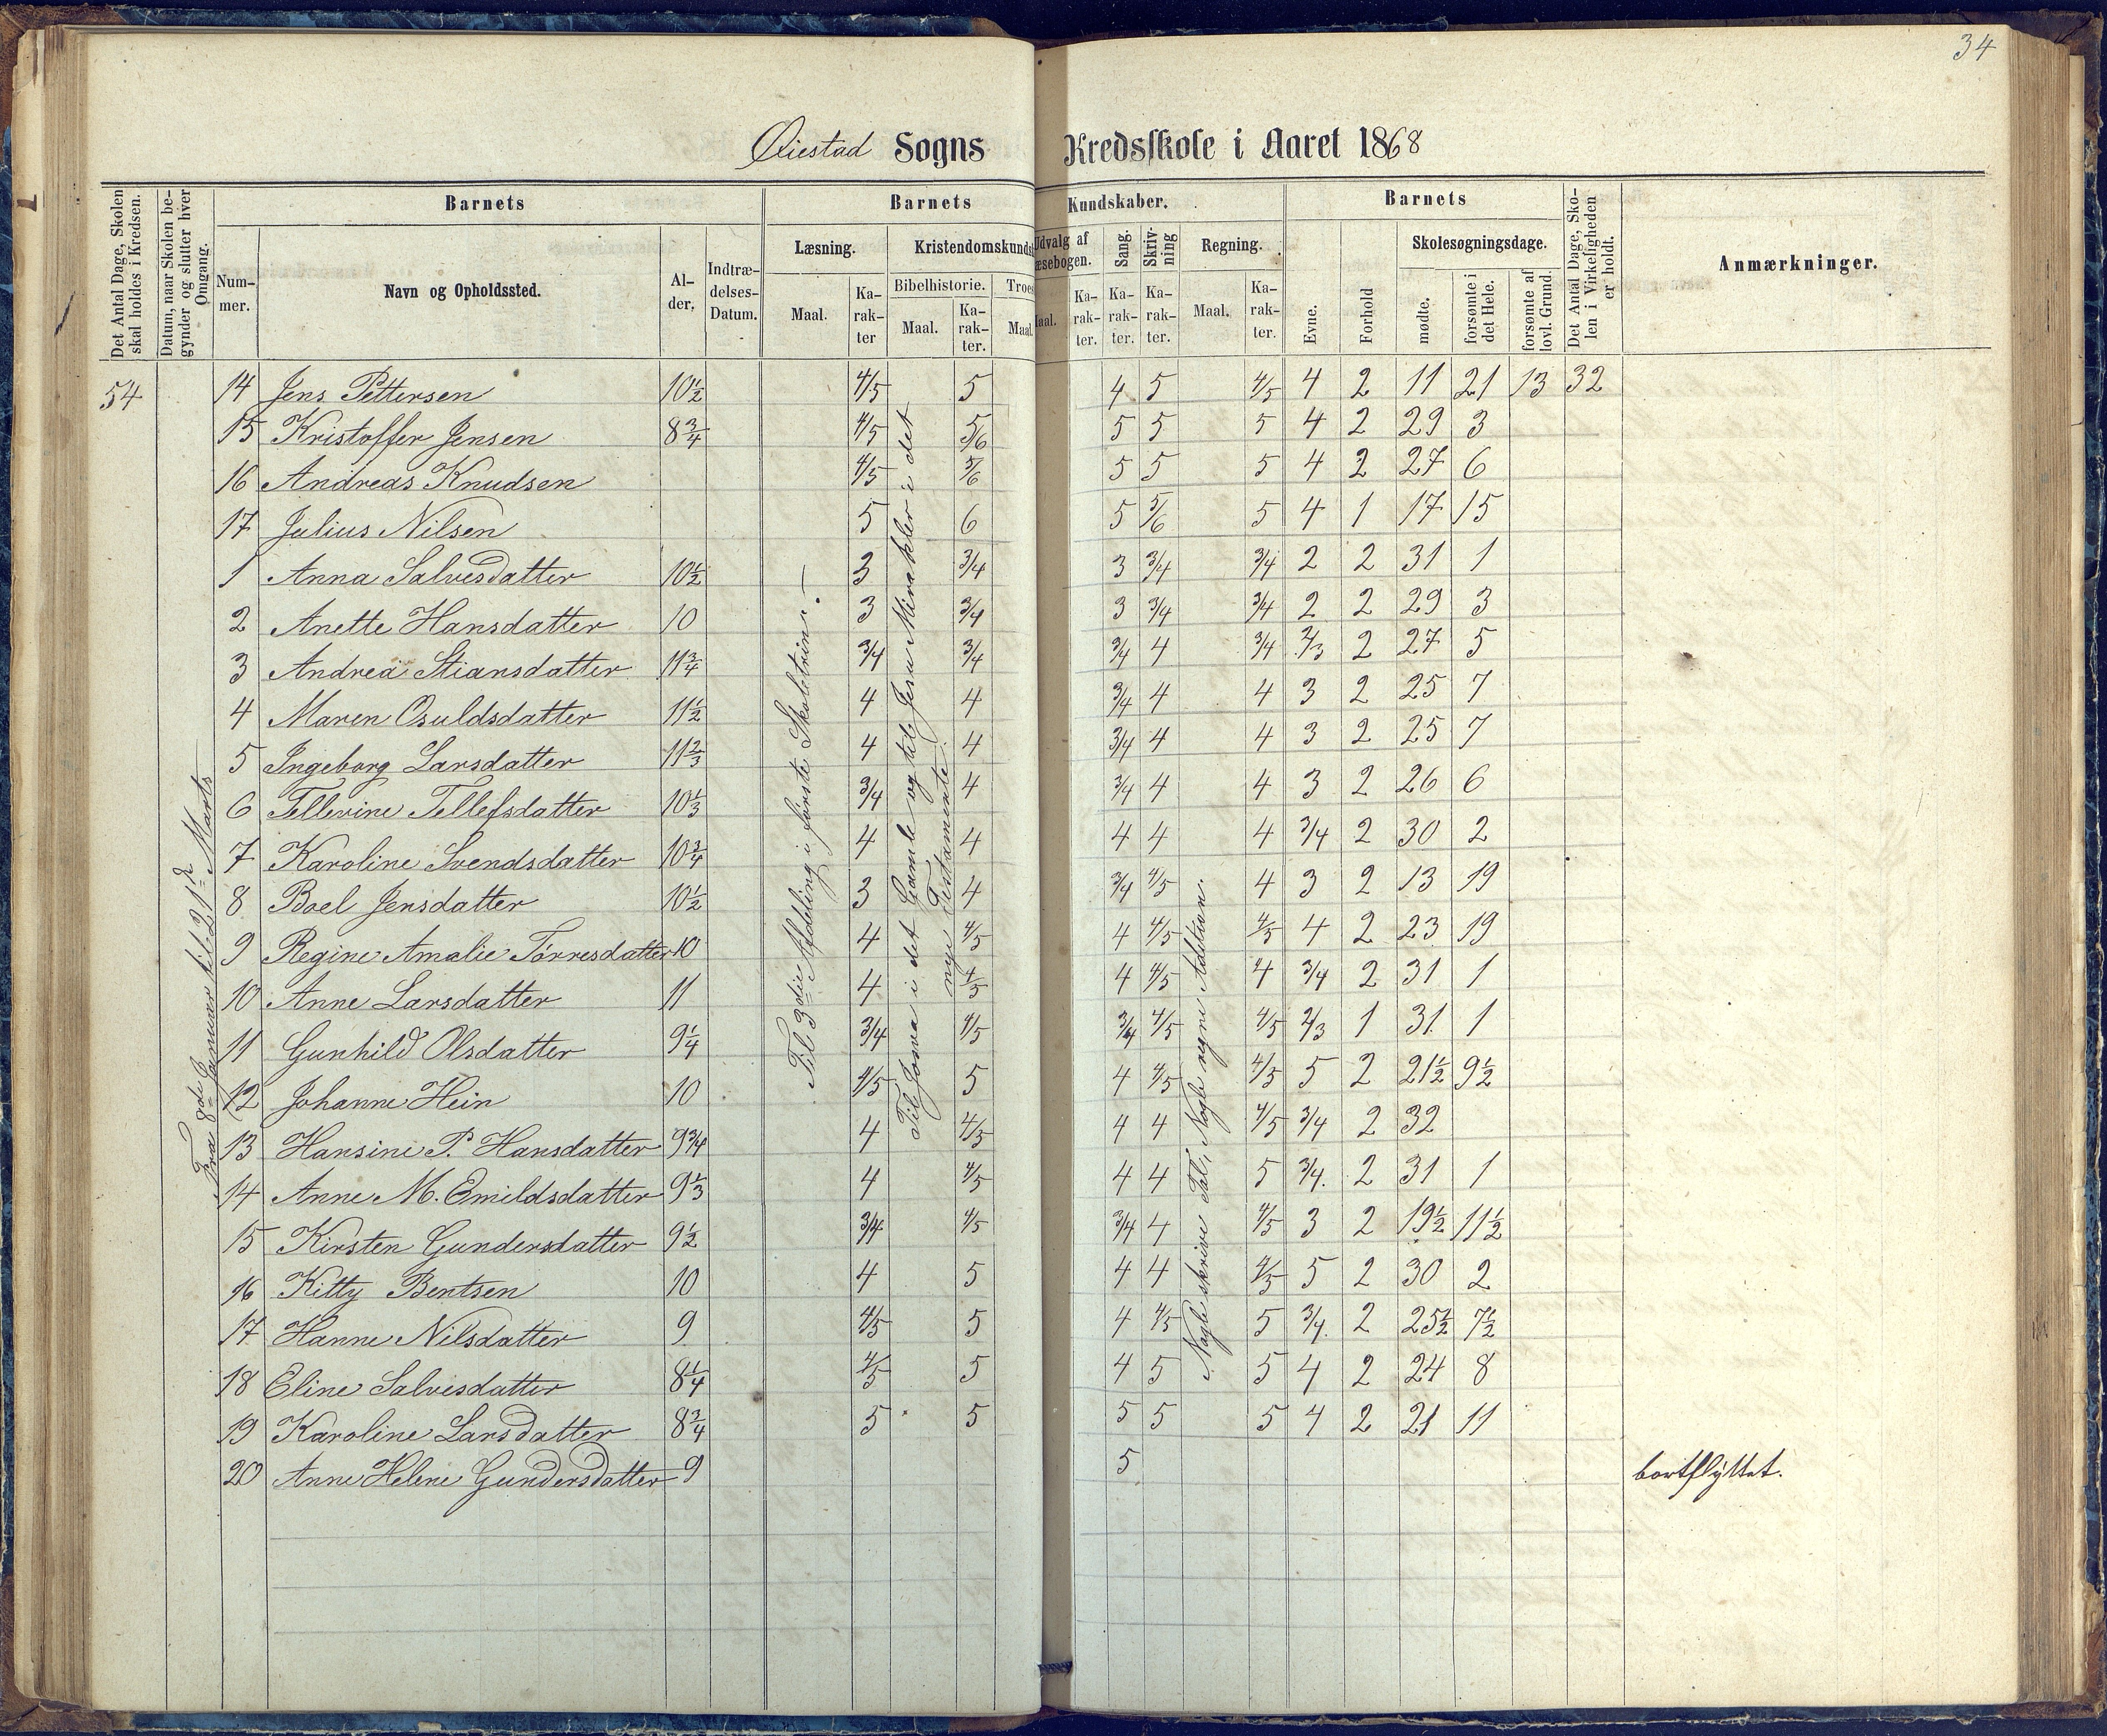 34
Øiestad Sogns Kredsskole i Aaret 1868
Det Antal Dage, Skolen skal holdes i Kredsen.
Datum, naar Skolen begynder og slutter hver Omgang.
Barnets
Nummer.
Navn og Opholdssted.
Alder.
Indtrædelses-Datum.
Barnets Kundskaber.
Læsning.
Maal.
Karakter
Kristendomskunds
Bibelhistorie.
Maal.
Karakter.
Troes
Maal
Udvalg af
æsebogen.
aal.
Karakter.
Sang.
Karakter.
Skrivning
Karakter.
Regning.
Maal.
Karakter.
Barnets
Evne.
Forhold
Skolesøgningsdage.
mødte.
forsømte i det Hele.
forsømte af lovl. Grund.
Det Antal Dage, Skolen i Virkeligheden er holdt.
Anmærkninger.
54 14 Jens Pettersen 10½ 4/5 5 4 5 4/5 4 2 11 21 13 32
15 Kristoffer Jensen 8¾ 4/5 5/6 5 5 5 4 2 29 3
16 Andreas Knudsen 4/5 5/6 5 5 5 4 2 27 6
17 Julius Nilsen 5 6 5 5/6 5 4 1 17 15
1 Anna Salvesdatter 10½ 3 3/4 3 3/4 3/4 2 2 31 1
2 Anette Hansdatter 10 3 3/4 3 3/4 3/4 2 2 29 3
3 Andrea Stiansdatter 11¾ 3/4 3/4 3/4 4 3/4 2/3 2 27 5
4 Maren Osuldsdatter 11½ 4 4 3/4 4 4 3 2 25 7
5 Ingeborg Larsdatter 11⅔ 4 4 3/4 4 4 3 2 25 7
6 Tellevine Tellefsdatter 10⅓ 3/4 4 3/4 4 4 3 2 26 6
7 Karoline Svendsdatter 10¾ 4 4 4 4 4 3/4 2 30 2
8 Boel Jensdatter 10½ 3 4 3/4 4/5 4 3 2 13 19
9 Regine Amalie Tørresdatter 10 4 4/5 4 4/5 4/5 4 2 23 19
10 Anne Larsdatter 11 4 4/5 4 4/5 4 3/4 2 31 1
11 Gunhild Olsdatter 9¼ 3/4 4/5 3/4 4/5 4/5 2/3 1 31 1
12 Johanne Hein 10 4/5 5 4 4/5 4/5 5 2 21½ 9½
13 Hansine P. Hansdatter 9¾ 4 4/5 4 4 4/5 3/4 2 32
14 Anne M. Emildsdatter 9⅓ 4 4/5 4 4 5 3/4. 2 31 1
15 Kirsten Gundersdatter 9½ 3/4 4/5 3/4 4 4/5 3 2 19½ 11½
16 Kitty Bentsen 10 4 5 4 4 4/5 5 2 30 2
17 Hanne Nilsdatter 9 4/5 5 4 4/5 5 3/4. 2 25½ 7½
18 Eline Salvesdatter 8¼ 4/5 5 4 5 5 4 2 24 8
19 Karoline Larsdatter 8¾ 5 5 5 5 5 4 2 21 11
20 Anne Helene Gundersdatter 9 5 bortflyttet.
Fra 8de Januar til 21de Marts
Til 3die Afdeling i første Skoletrin. —
Til Josva i det Gamle og til Jesu Mirakler i det
nye Testamente.
Nogle skrive Tal, Nogle regne Addition.